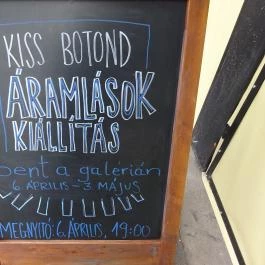 KISS BOTOND
ÁRAMLÁSOK
KIÁLLÍTÁS
bent a galérián
6. ÁPRILIS - 3. MÁJUS
MEGNYITÓ: 6. ÁPRILIS, 19:00